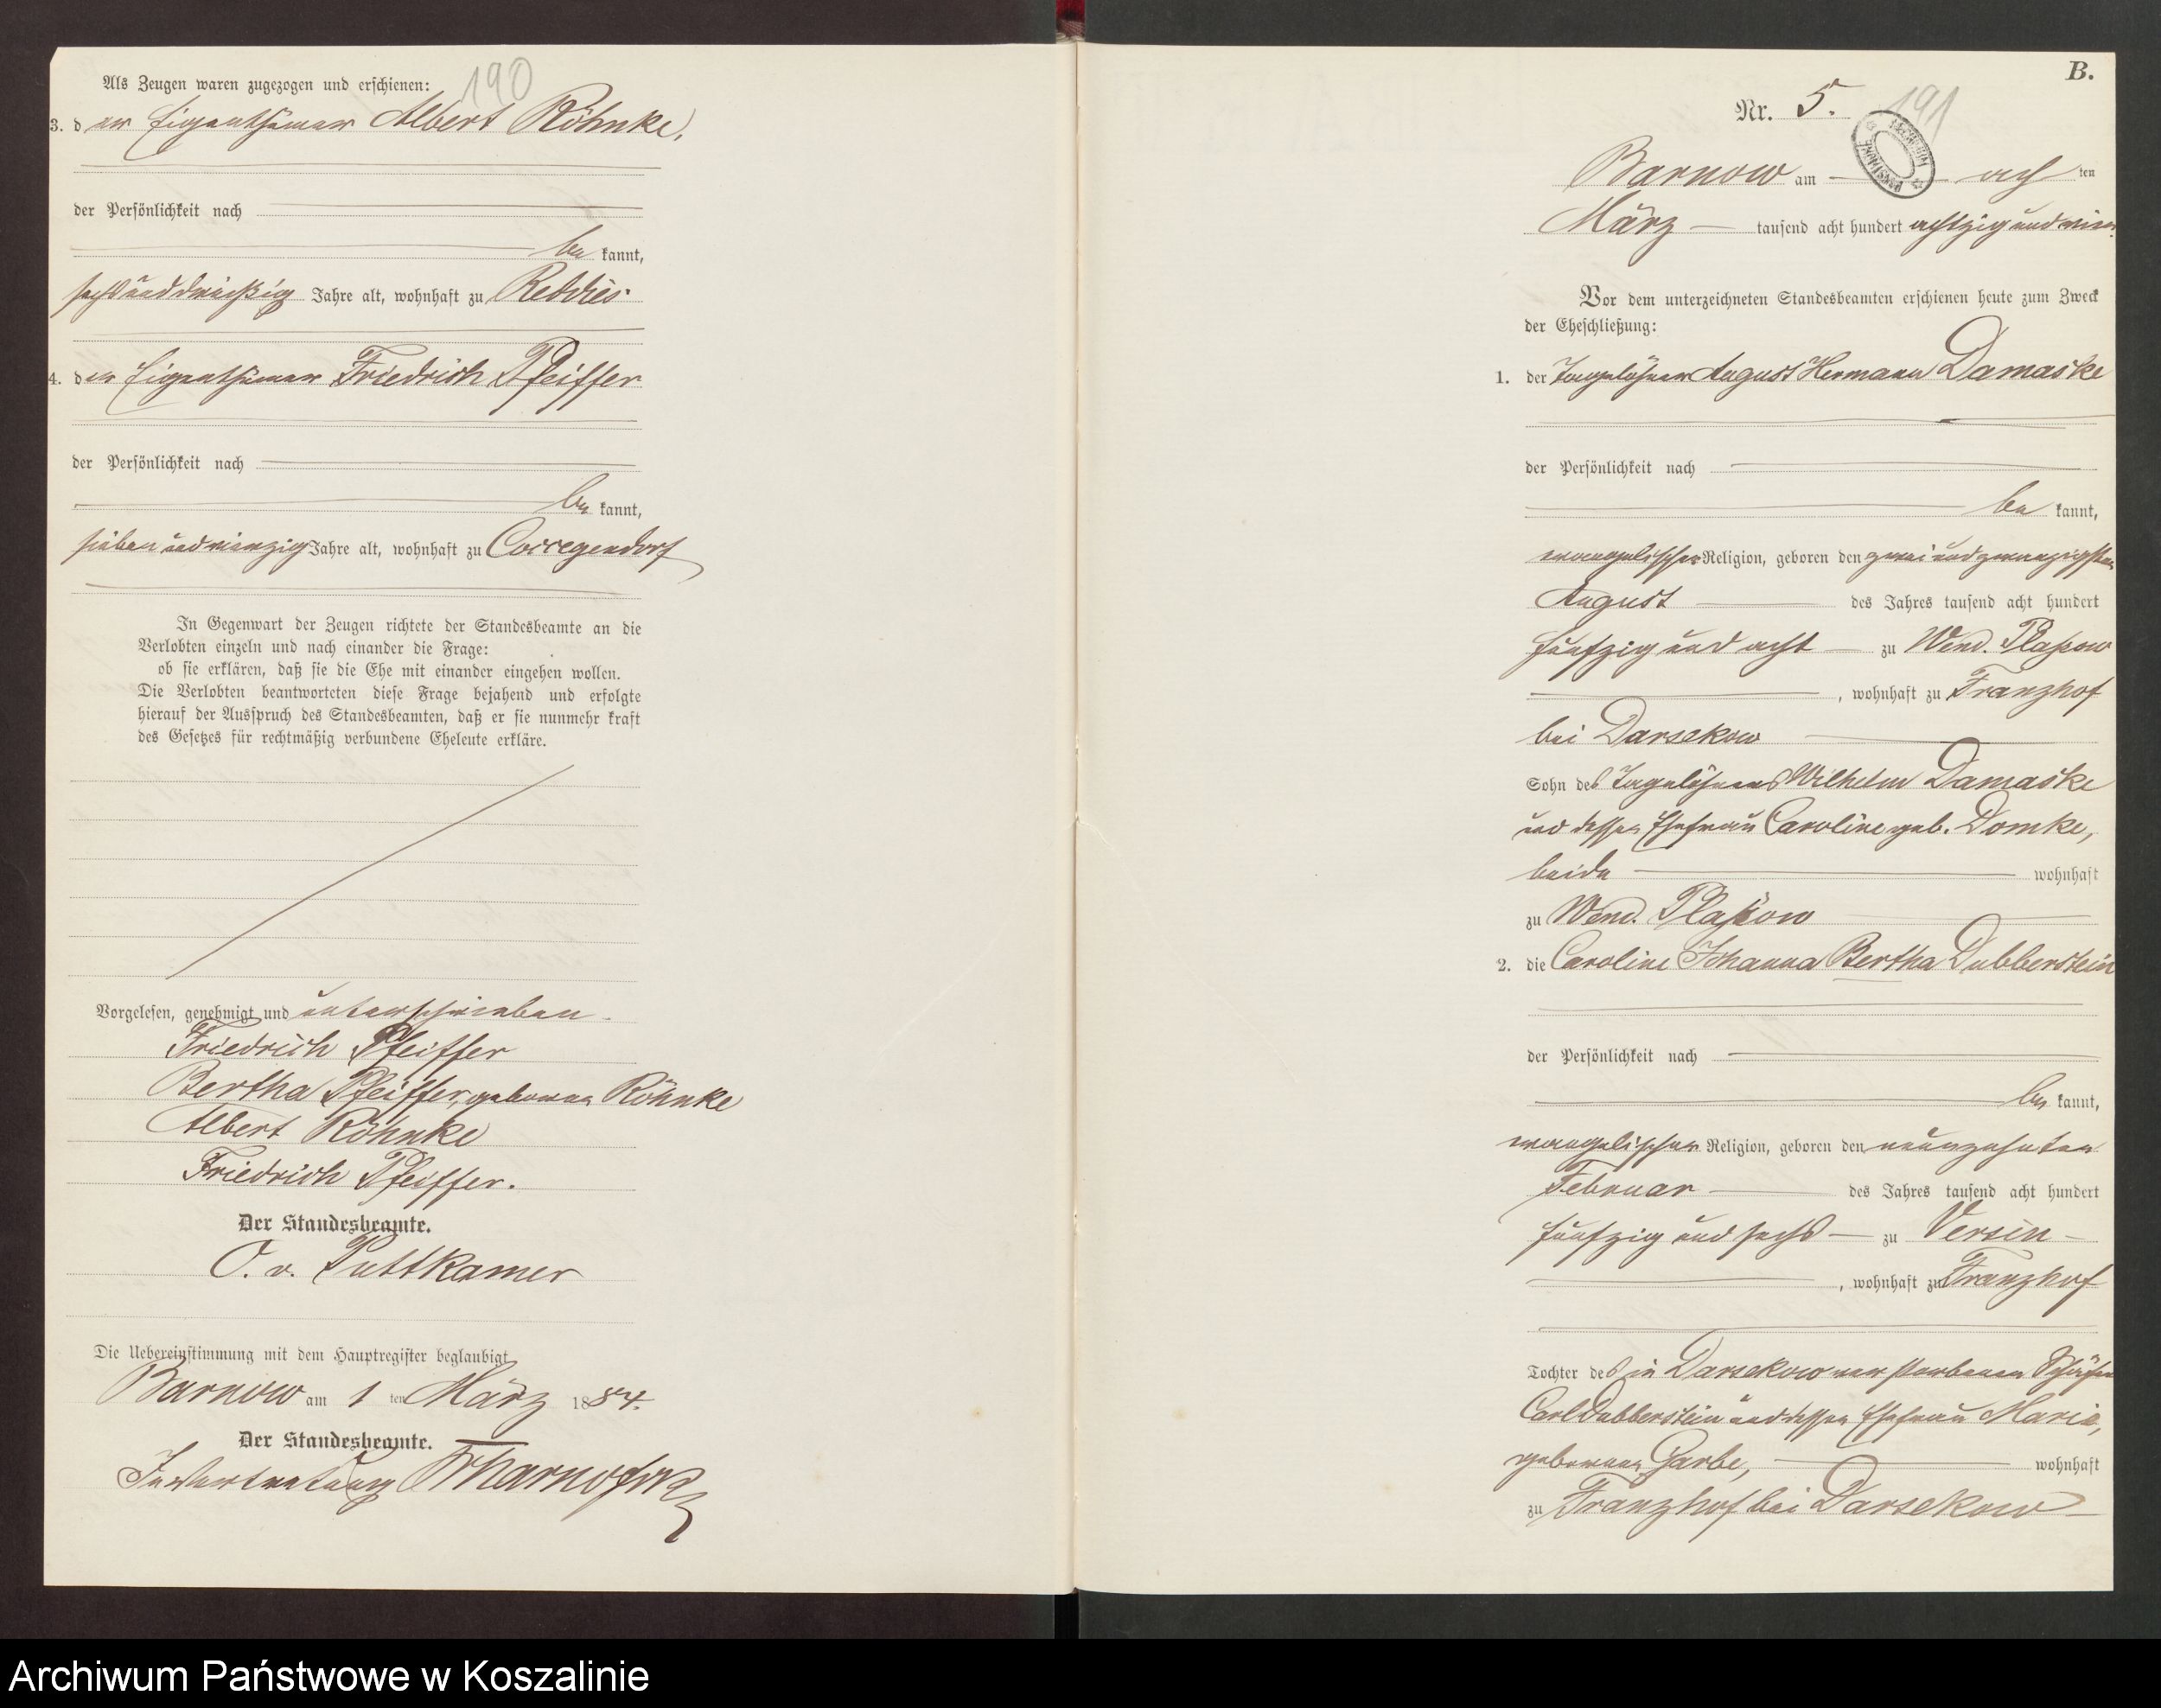 190
Als Zeugen waren zugezogen und erschienen:
3. der Eigenthümer Albert Röhnke,
der Persönlichkeit nach
be kannt,
sechsunddreißig Jahre alt, wohnhaft zu Reddies
4. der Eigenthümer Friedrich Pfeiffer
der Persönlichkeit nach
be kannt,
sieben und vierzig Jahre alt, wohnhaft zu
In Gegenwart der Zeugen richtete der Standesbeamte an die
Verlobten einzeln und nach einander die Frage:
ob sie erklären, daß sie die Ehe mit einander eingehen wollen.
Die Verlobten beantworteten diese Frage bejahend und erfolgte
hierauf der Ausspruch des Standesbeamten, daß er sie nunmehr kraft
des Gesetzes für rechtmäßig verbundene Eheleute erkläre.
Vorgelesen, genehmigt und unterschrieben.
Friedrich Pfeiffer
Bertha Pfeiffer, geborene Röhnke
Albert Röhnke
Friedrich Pfeiffer.
Der Standesbeamte.
O. v. Puttkamer
Die Uebereinstimmung mit dem Hauptregister beglaubigt
Barnow am 1 ten März 1884.
Der Standesbeamte.
In Vertretung
B.
Nr. 5.
191
Barnow am acht ten
März tausend acht hundert achtzig und vier
Vor dem unterzeichneten Standesbeamten erschienen heute zum Zweck
der Eheschließung:
1. der Tagelöhner August Hermann Damaske
der Persönlichkeit nach
be kannt,
evangelischer Religion, geboren den zwei und zwanzigsten
August des Jahres tausend acht hundert
fünfzig und acht zu Wend. Plaßow
, wohnhaft zu Franzhof
bei Darsekow
Sohn des Tagelöhners Wilhelm Damaske
und dessen Ehefrau Caroline geb. Domke,
beide wohnhaft
zu Wend. Plaßow
2. die Caroline Johanna Bertha Dubberstein
der Persönlichkeit nach
be kannt,
evangelischer Religion, geboren den neunzehnten
Februar des Jahres tausend acht hundert
fünfzig und sechs zu Versin
, wohnhaft zu Franzhof
Tochter des in Darsekow verstorbenen Schäfer
Carl Dubberstein und dessen Ehefrau Marie,
geborene Garbe, wohnhaft
zu Franzhof bei Darsekow
Archiwum Państwowe w Koszalinie